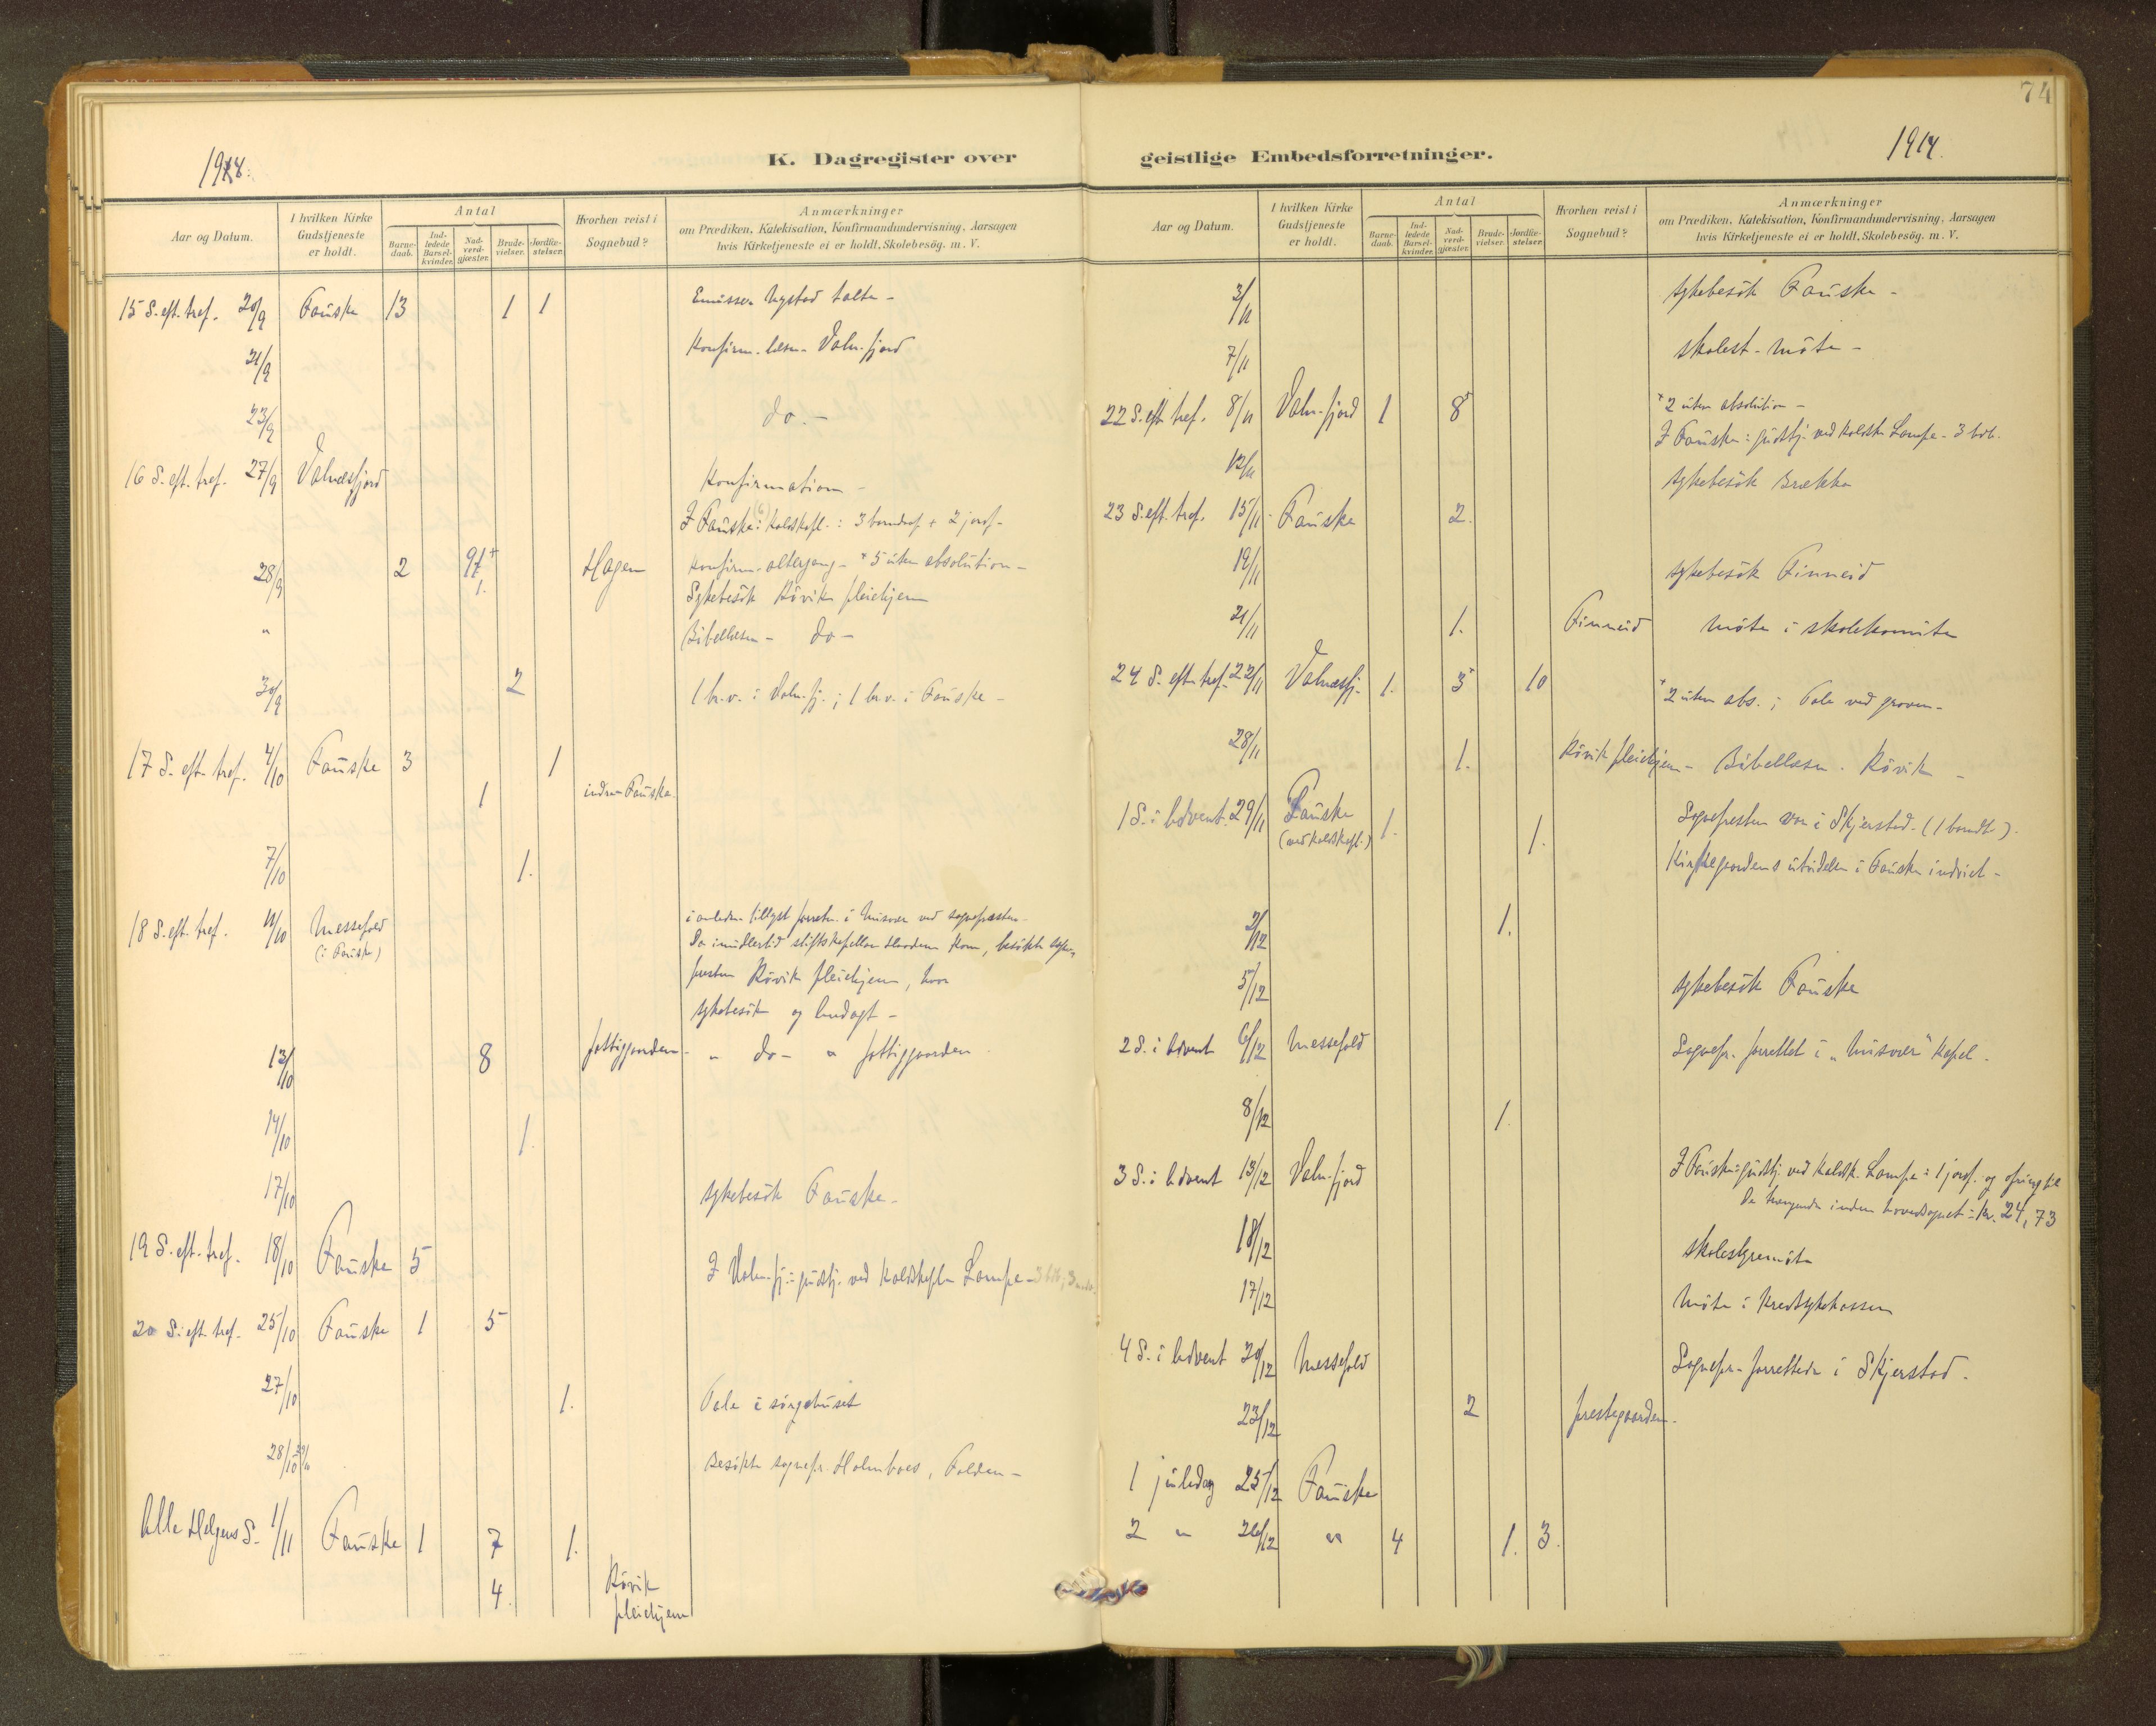 74
K. Dagregister over geistlige Embedsforretninger.
1914.
Aar og Datum. I hvilken Kirke Gudstjeneste er holdt. Antal Barnedaab. Indledede Barselkvinder. Nadverdgjæster. Brudevielser. Jordfæstelser. Hvorhen reist i Sognebud? Anmærkninger om Prædiken, Katekisation, Konfirmandundervisning, Aarsagen hvis Kirketjeneste ei er holdt, Skolebesög. m. V.
15 S. eft. tref. 20/9 Fauske 13 1 1 Emissær Nystad talte -
21/9 Konfirm. læsn. Valn.fjord
23/9 do. -
16 S. eft. tref. 27/9 Valnesfjord Konfirmation -
I Fauske: Kaldskapl.: 3 barnedaab + 2 jordf.
28/9 2 97+ 1. Hagen Konfirm. altergang - + 5 uten absolution -
Sykebesök Rövik pleiehjem
" Bibellesn - do -
30/9 2 1 br.v. i Valn.fj.; 1 br.v. i Fauske -
17 S. eft. tref. 4/10 Fauske 3 1
1 indre Fauske.
7/10 1.
18 S. eft. tref. 11/10 Messefald (i Fauske) i anledn. tillyst forretn. i Misvær ved sogneprestn.
Da imidlertid stiftskapellan kom, besökte sogne-
presten Rövik pleiehjem, hvor
sykebesök og andagt -
13/10 8 fattiggaarden - " do - " fattiggaarden
14/10 1.
17/10 sykebesök Fauske -
19 S. eft. tref. 18/10 Fauske 5 I Valn.fj.: gudstj. ved Kaldskapln Lampe -
20 S. eft. tref. 25/10 Fauske 1 5
27/10 1. Tale i sörgehuset
28/10 29/10 Besökte sognepr. Holmboes, Folden -
Alle Helgens S. 1/11 Fauske 1 7 1.
4. Rövik pleiehjem
1914.
Aar og Datum. I hvilken Kirke Gudstjeneste er holdt. Antal Barnedaab. Indledede Barselkvinder. Nadverdgjæster. Brudevielser. Jordfæstelser. Hvorhen reist i Sognebud? Anmærkninger om Prædiken, Katekisation, Konfirmandundervisning, Aarsagen hvis Kirketjeneste ei er holdt, Skolebesög. m. V.
3/11 sykebesök Fauske -
7/11 skolest. möte -
22 S. eft. tref. 8/11 Valn.fjord 1 8+ + 2 uten absolution -
I Fauske: gudstj. ved Kaldsk. Lampe - 3 bdb.
12/11 sykebesök Brækka
23 S. eft. tref. 15/11 Fauske 2.
19/11 sykebesök Finneid
21/11 1. Finneid möte i skolekomite
24 S. eft. tref. 22/11 Valnesfj. 1. 3+ 10 + 2 uten abs.; Tale ved graven -
28/11 1. Rövik pleiehjem - Bibellæsn. Rövik -
1 S. i Advent. 29/11 Fauske (ved Kaldskapl.) 1. 1. Sognepresten var i Skjerstad. (1 barndb).
Kirkegaardens utvidelse i Fauske indviet -
2/12 1.
5/12 sykebesök Fauske
2 S. i Advent 6/12 Messefald Sognepr. forrettet i "Misvær" Kapel.
8/12 1.
3 S. i Advent 13/12 Valn.fjord I Fauske: gudstj. ved Kaldsk. Lampe: 1 jordf. og ofring til
De trængende inden hovedsognet: kr. 24,73
18/12 skolestyremöte
17/12 Möte i Kredssykekassen
4 S. i Advent 20/12 Messefald Sognepr. forrettede i Skjerstad.
23/12 2 prestegaarden.
1 juledag 25/12 Fauske
2 " 26/12 " 4 1. 3.